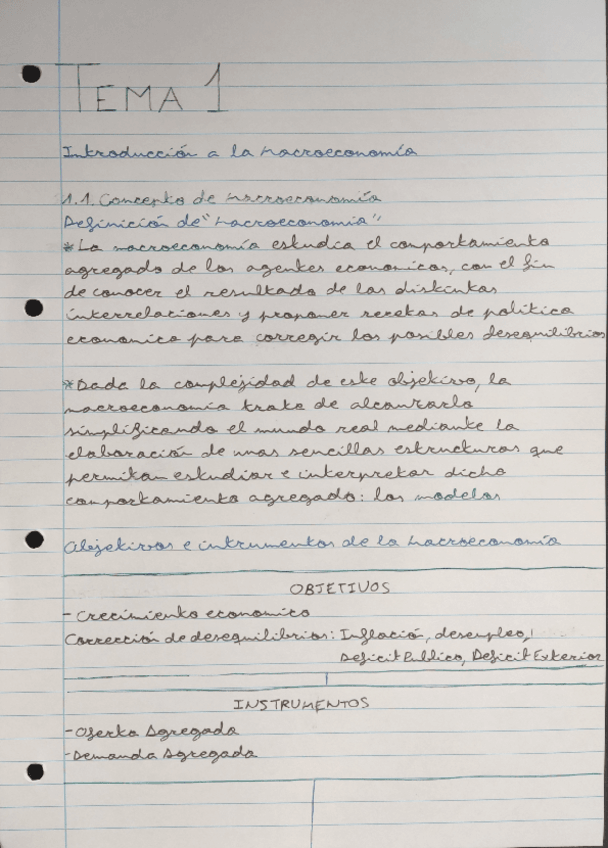 TEMA 1
Introducción a la Macroeconomía
1.1. Concepto de Macroeconomía
Definición de "Macroeconomia"
*La macroeconomía estudia el comportamiento
agregado de los agentes economicos, con el fin
de conocer el resultado de las distintas
interrelaciones y proponer recetas de politica
economica para corregir los posibles desequilibrios
*Dada la complejidad de este objetivo, la
macroeconomía trata de alcanzarlo
simplificando el mundo real mediante la
elaboración de unas sencillas estructuras que
permitan estudiar e interpretar dicho
comportamiento agregado: los modelos
Objetivos e intrumentos de la Macroeconomía
OBJETIVOS
- Crecimiento economico
Corrección de desequilibrios: Inflación, desempleo,
Deficit Publico, Deficit Exterior
INSTRUMENTOS
- Oferta Agregada
- Demanda Agregada